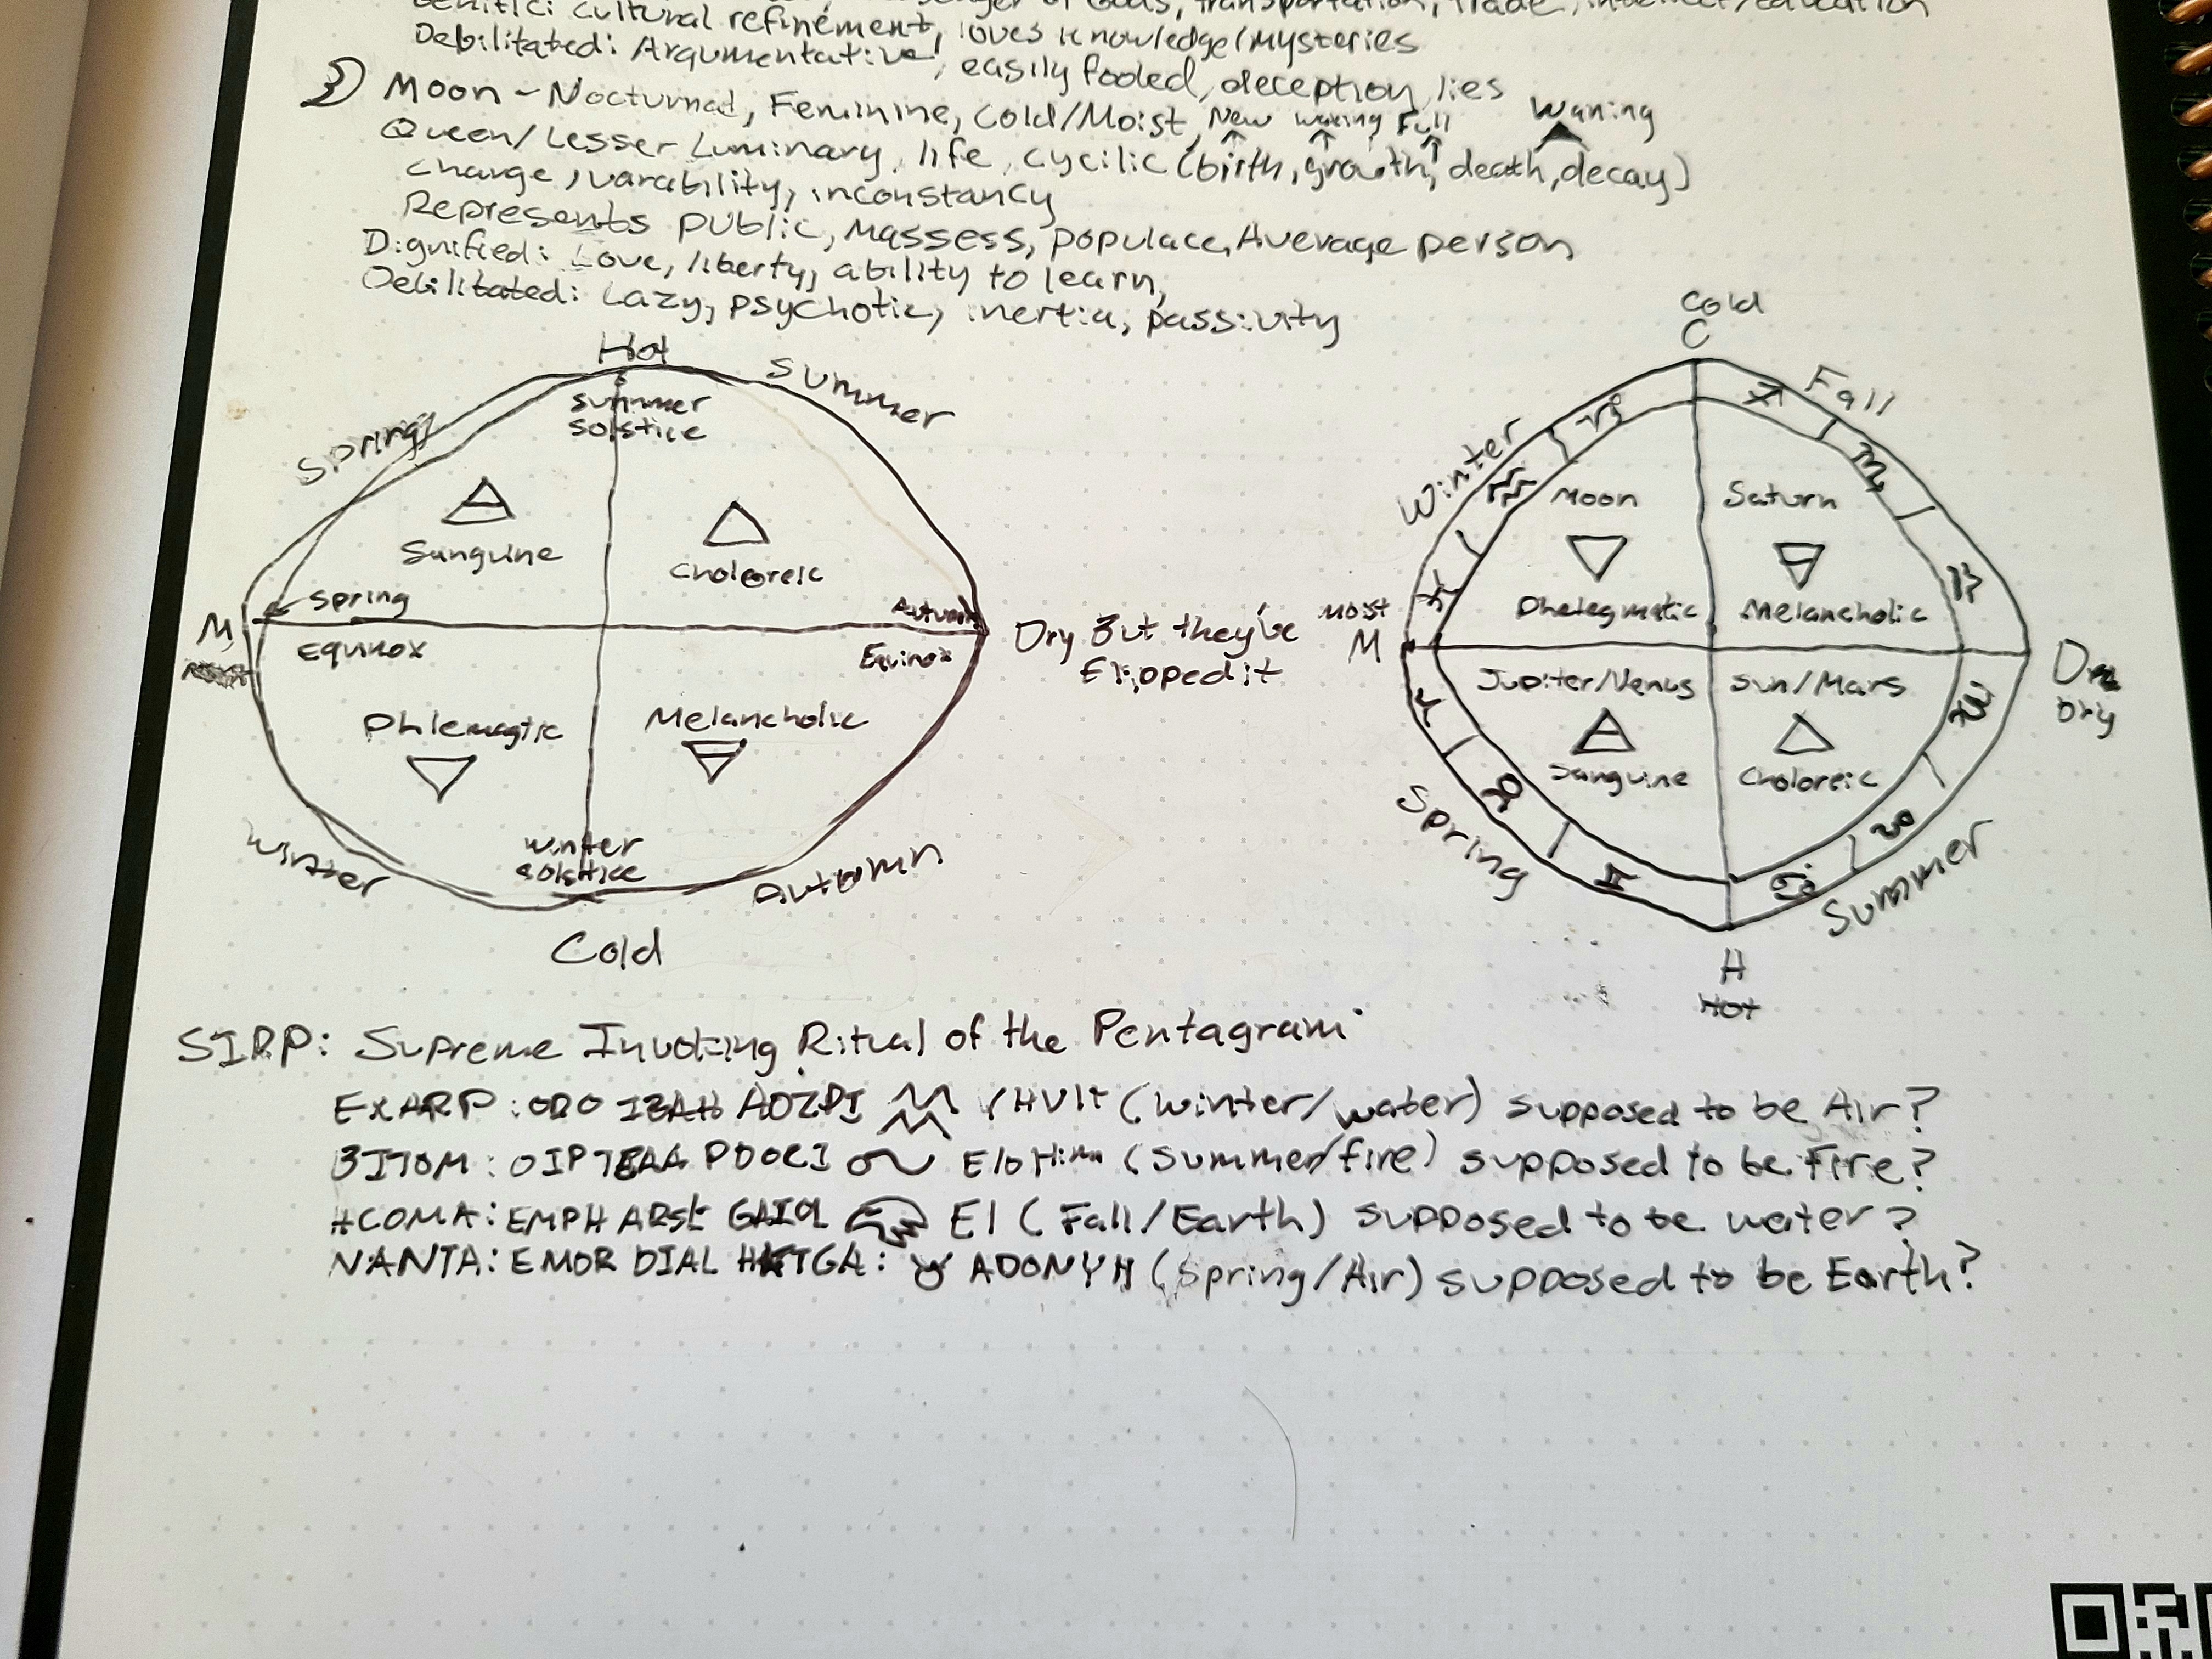 cultural refinement, of Gods, transportation, Trade,
Debilitated: Argumentative, loves knowledge/mysteries
easily fooled, deception, lies
Moon - Nocturnal, Feminine, Cold/Moist, New waxing Full Waning
Queen/Lesser Luminary, life, cyclic (birth, growth, death, decay)
change, varability, inconstancy
Represents public, Massess, populace, Average person
Dignified: Love, liberty, ability to learn,
Debilitated: Lazy, psychotic, inertia, passivity
Hot
Spring
Summer
Summer
Solstice
Sanguine
Choloreic
Spring
Equinox
Autumn
Equinox
M
Dry But they've
Flipped it
Phlemagtic
Melancholic
Winter
Solstice
Winter
Autumn
Cold
Cold
C
Winter
Fall
Moon
Saturn
Phelegmatic
Melancholic
Moist
M
Dry
Jupiter/Venus
Sun/Mars
Sanguine
Choloreic
Spring
Summer
H
Hot
SIRP: Supreme Invoking Ritual of the Pentagram
EXARP: ORO IBAH AOZPI ♒ YHVH (Winter/water) supposed to be Air?
BITOM: OIP TEAA PDOCI ♌ ElOHim (Summer/fire) supposed to be Fire?
HCOMA: EMPH ARSL GAIOL El (Fall/Earth) supposed to be water?
NANTA: EMOR DIAL HKTGA: ♉ ADONYH (Spring/Air) supposed to be Earth?